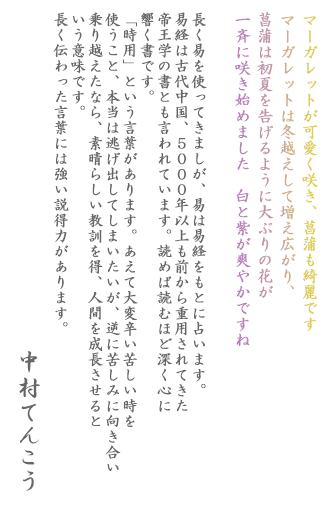 マーガレットが可愛く咲き、菖蒲も綺麗です
マーガレットは冬越えして増え広がり、
菖蒲は初夏を告げるように大ぶりの花が
一斉に咲き始めました　白と紫が爽やかですね
長く易を使ってきましが、易は易経をもとに占います。
易経は古代中国、５０００年以上も前から重用されてきた
帝王学の書とも言われています。読めば読むほど深く心に
響く書です。
「時用」という言葉があります。あえて大変辛い苦しい時を
使うこと、本当は逃げ出してしまいたいが、逆に苦しみに向き合い
乗り越えたなら、素晴らしい教訓を得、人間を成長させると
いう意味です。
長く伝わった言葉には強い説得力があります。
中村てんこう